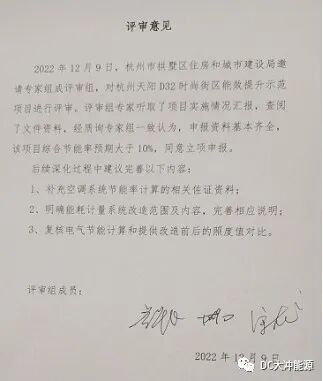 评审意见
2022 年 12 月 9 日，杭州市拱墅区住房和城市建设局邀
请专家组成评审组，对杭州天阳 D32 时尚街区能效提升示范
项目进行评审。评审组专家听取了项目实施情况汇报，查阅
了文件资料，经质询专家组一致认为，申报资料基本齐全，
该项目综合节能率预期大于 10%，同意立项申报。
后续深化过程中建议完善以下内容：
1、补充空调系统节能率计算的相关佐证资料；
2、明确能耗计量系统改造范围及内容，完善相应说明；
3、复核电气节能计算和提供改造前后的照度值对比。
评审组成员：
2022 年 12 月 9 日
DC大冲能源